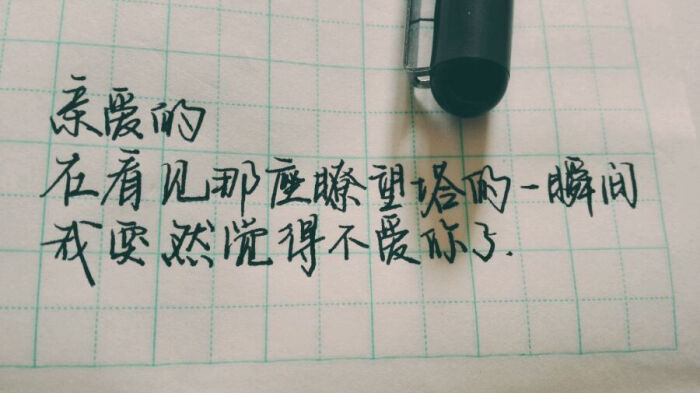 亲爱的
在看见那座瞭望塔的一瞬间
我突然觉得不爱你了.